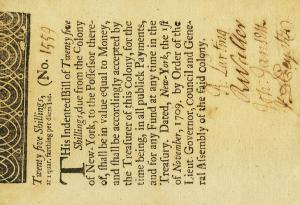 Twenty five Shillings, (No. 1559
THis Indented Bill of Twenty five
Shillings, due from the Colony
of New-York, to the Possessor there-
of, shall be in value equal to Money,
and shall be accordingly accepted by
the Treasurer of this Colony, for the
time being, in all publick Payments,
and for any Fund at any time in the
Treasury. Dated, New-York, the 1st
of November, 1709. by Order of the
Lieut. Governor, Council and Gene-
ral Assembly of the said Colony.
R Walter